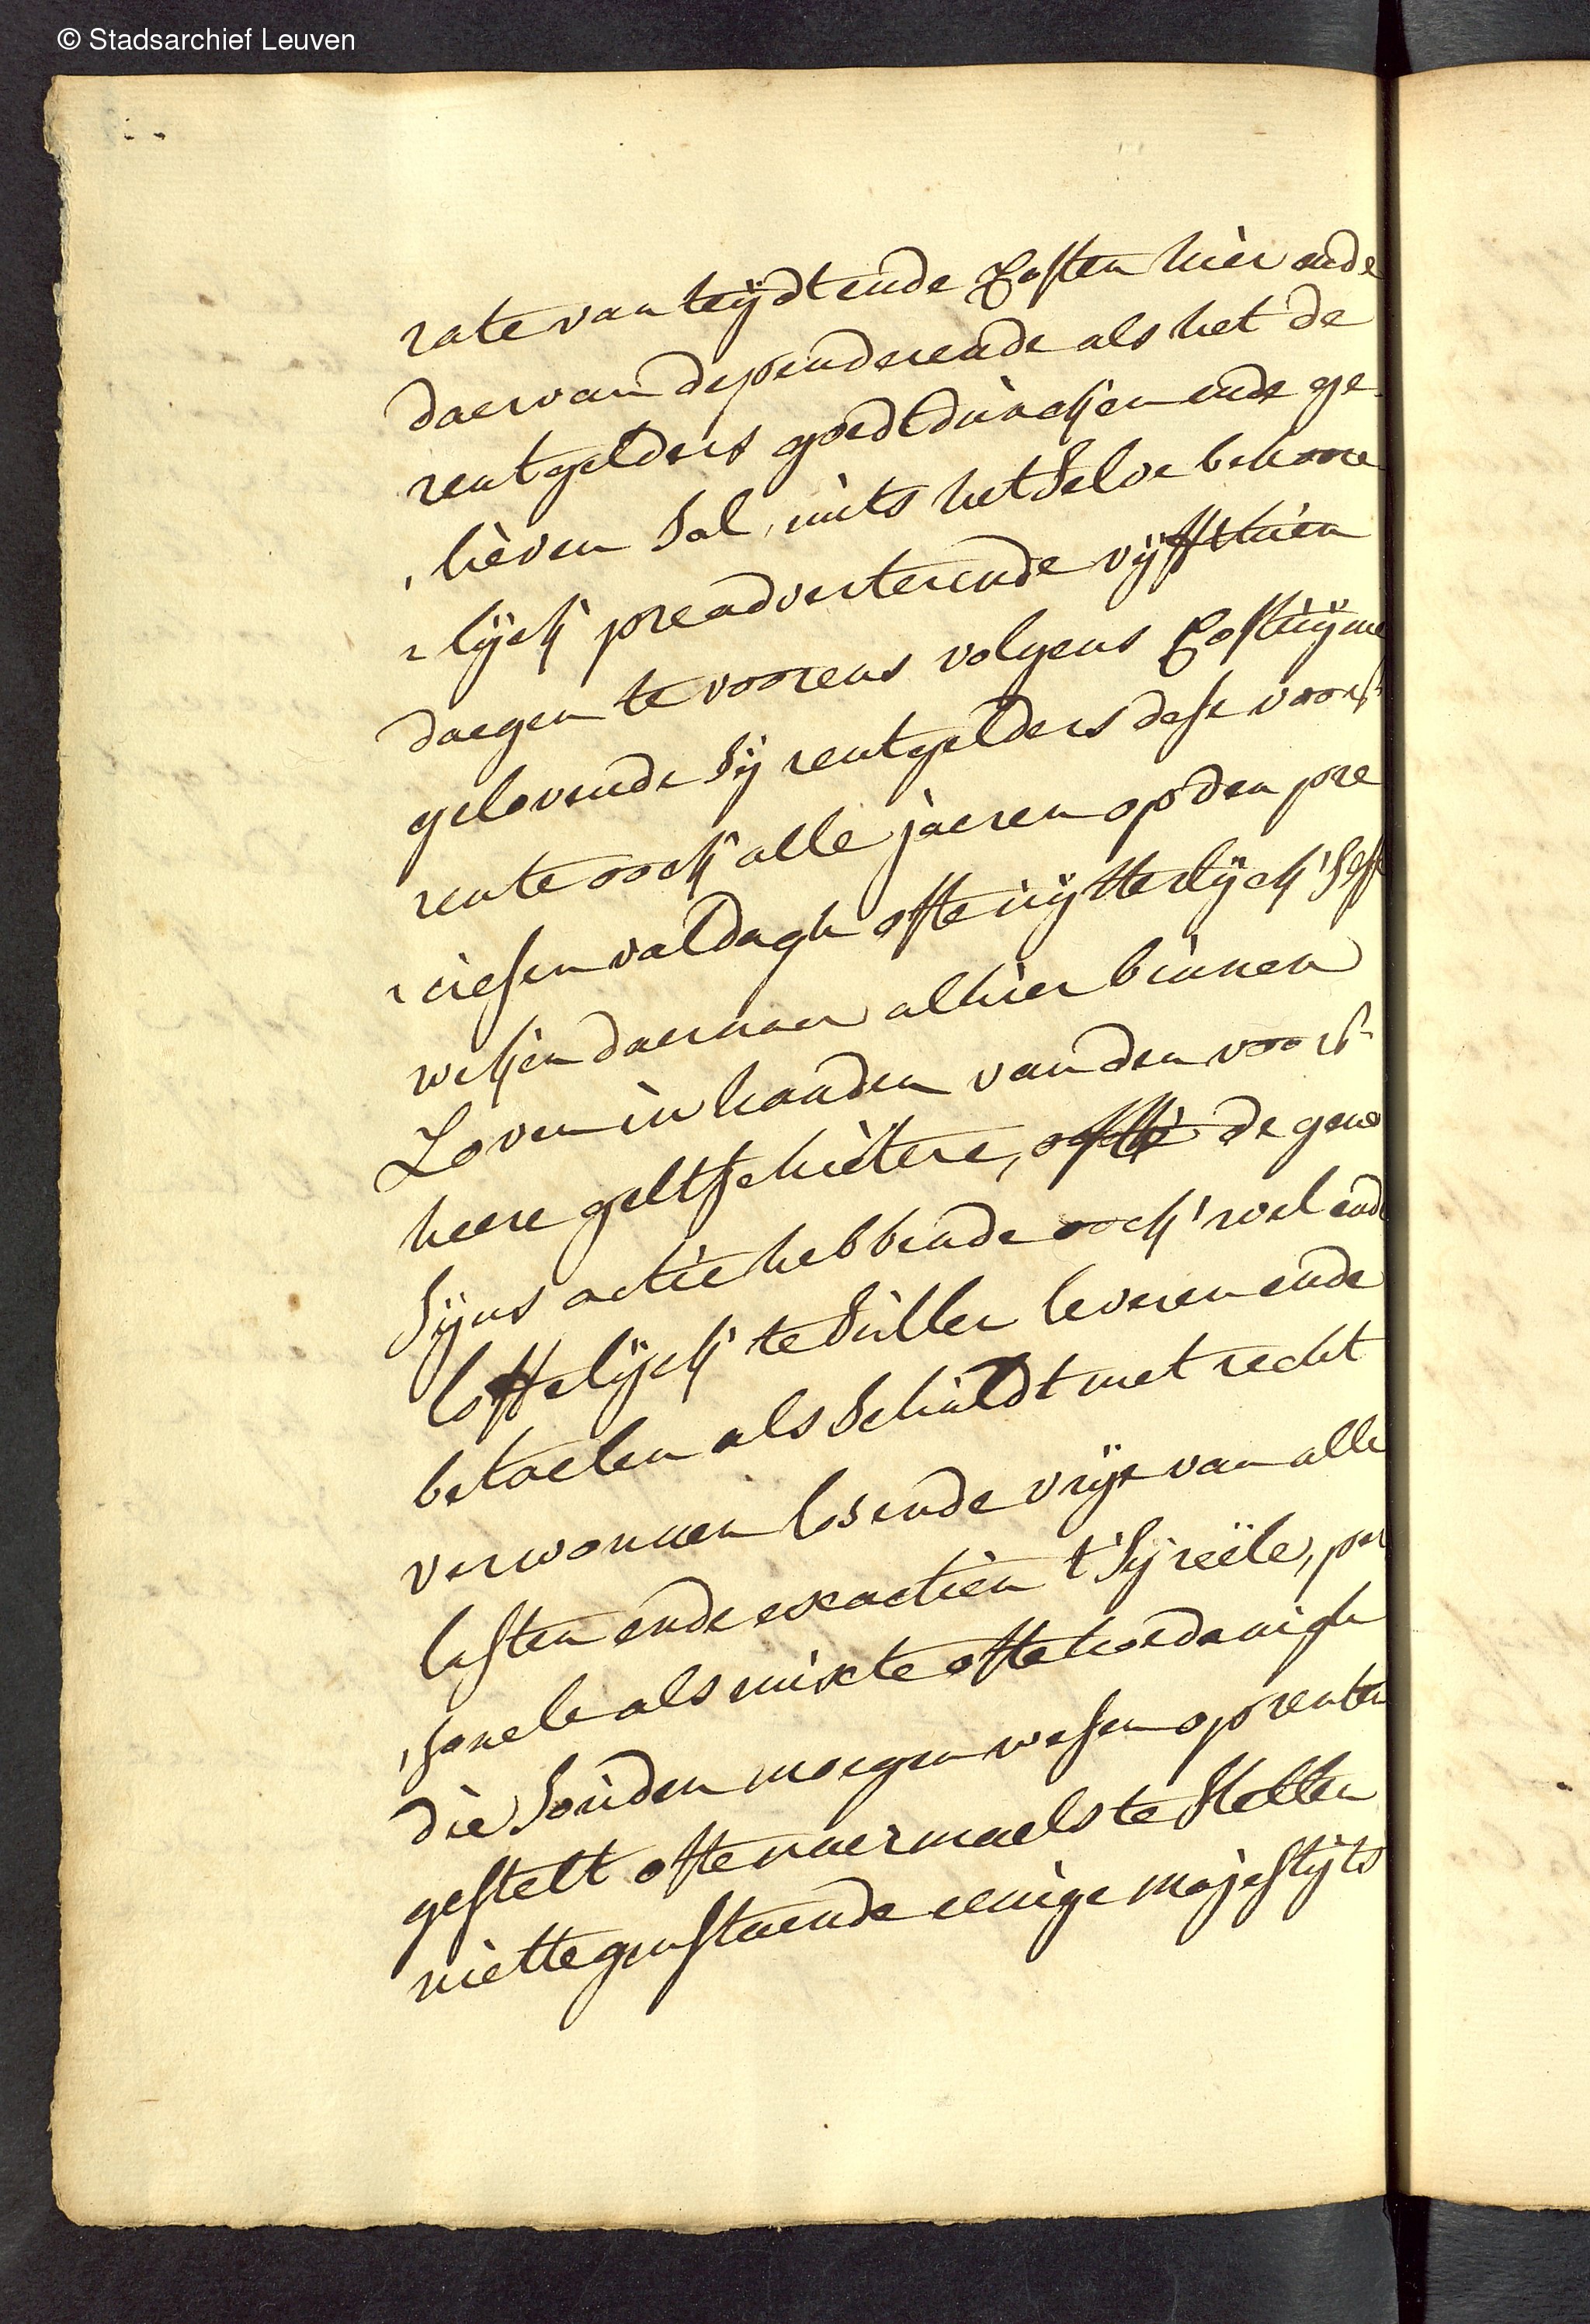 © Stadsarchief Leuven
rate van teÿdt ende Costen hier ende
daervan dependerende als het de
rentgelders goedtdùncken ende ge
lieven sal, mits het selve behoore
lÿck preadverterende vÿffthien
daegen te voorens volgens Costùÿme
gelovende sÿ rentgelders dese voors:
rente oock alle jaeren op den pre
ciesen valdagh ofte ùÿtterlÿck sess
weken daernaer alhier binnen
Loven in handen van den voors:
heere geltschietere, ofte de gene
sÿns actie hebbende oock wel ende
loffelÿck te sùllen leveren ende
betaelen als schùldt met recht
verwonnen los ende vrÿe van alle
lasten ende exactien t'sÿ reële, per
sonele als mixte ofte hoedanigh
die soùden moegen wesen op renten
gestelt ofte naermaels te stellen
niettegenstaende eenige majestÿts